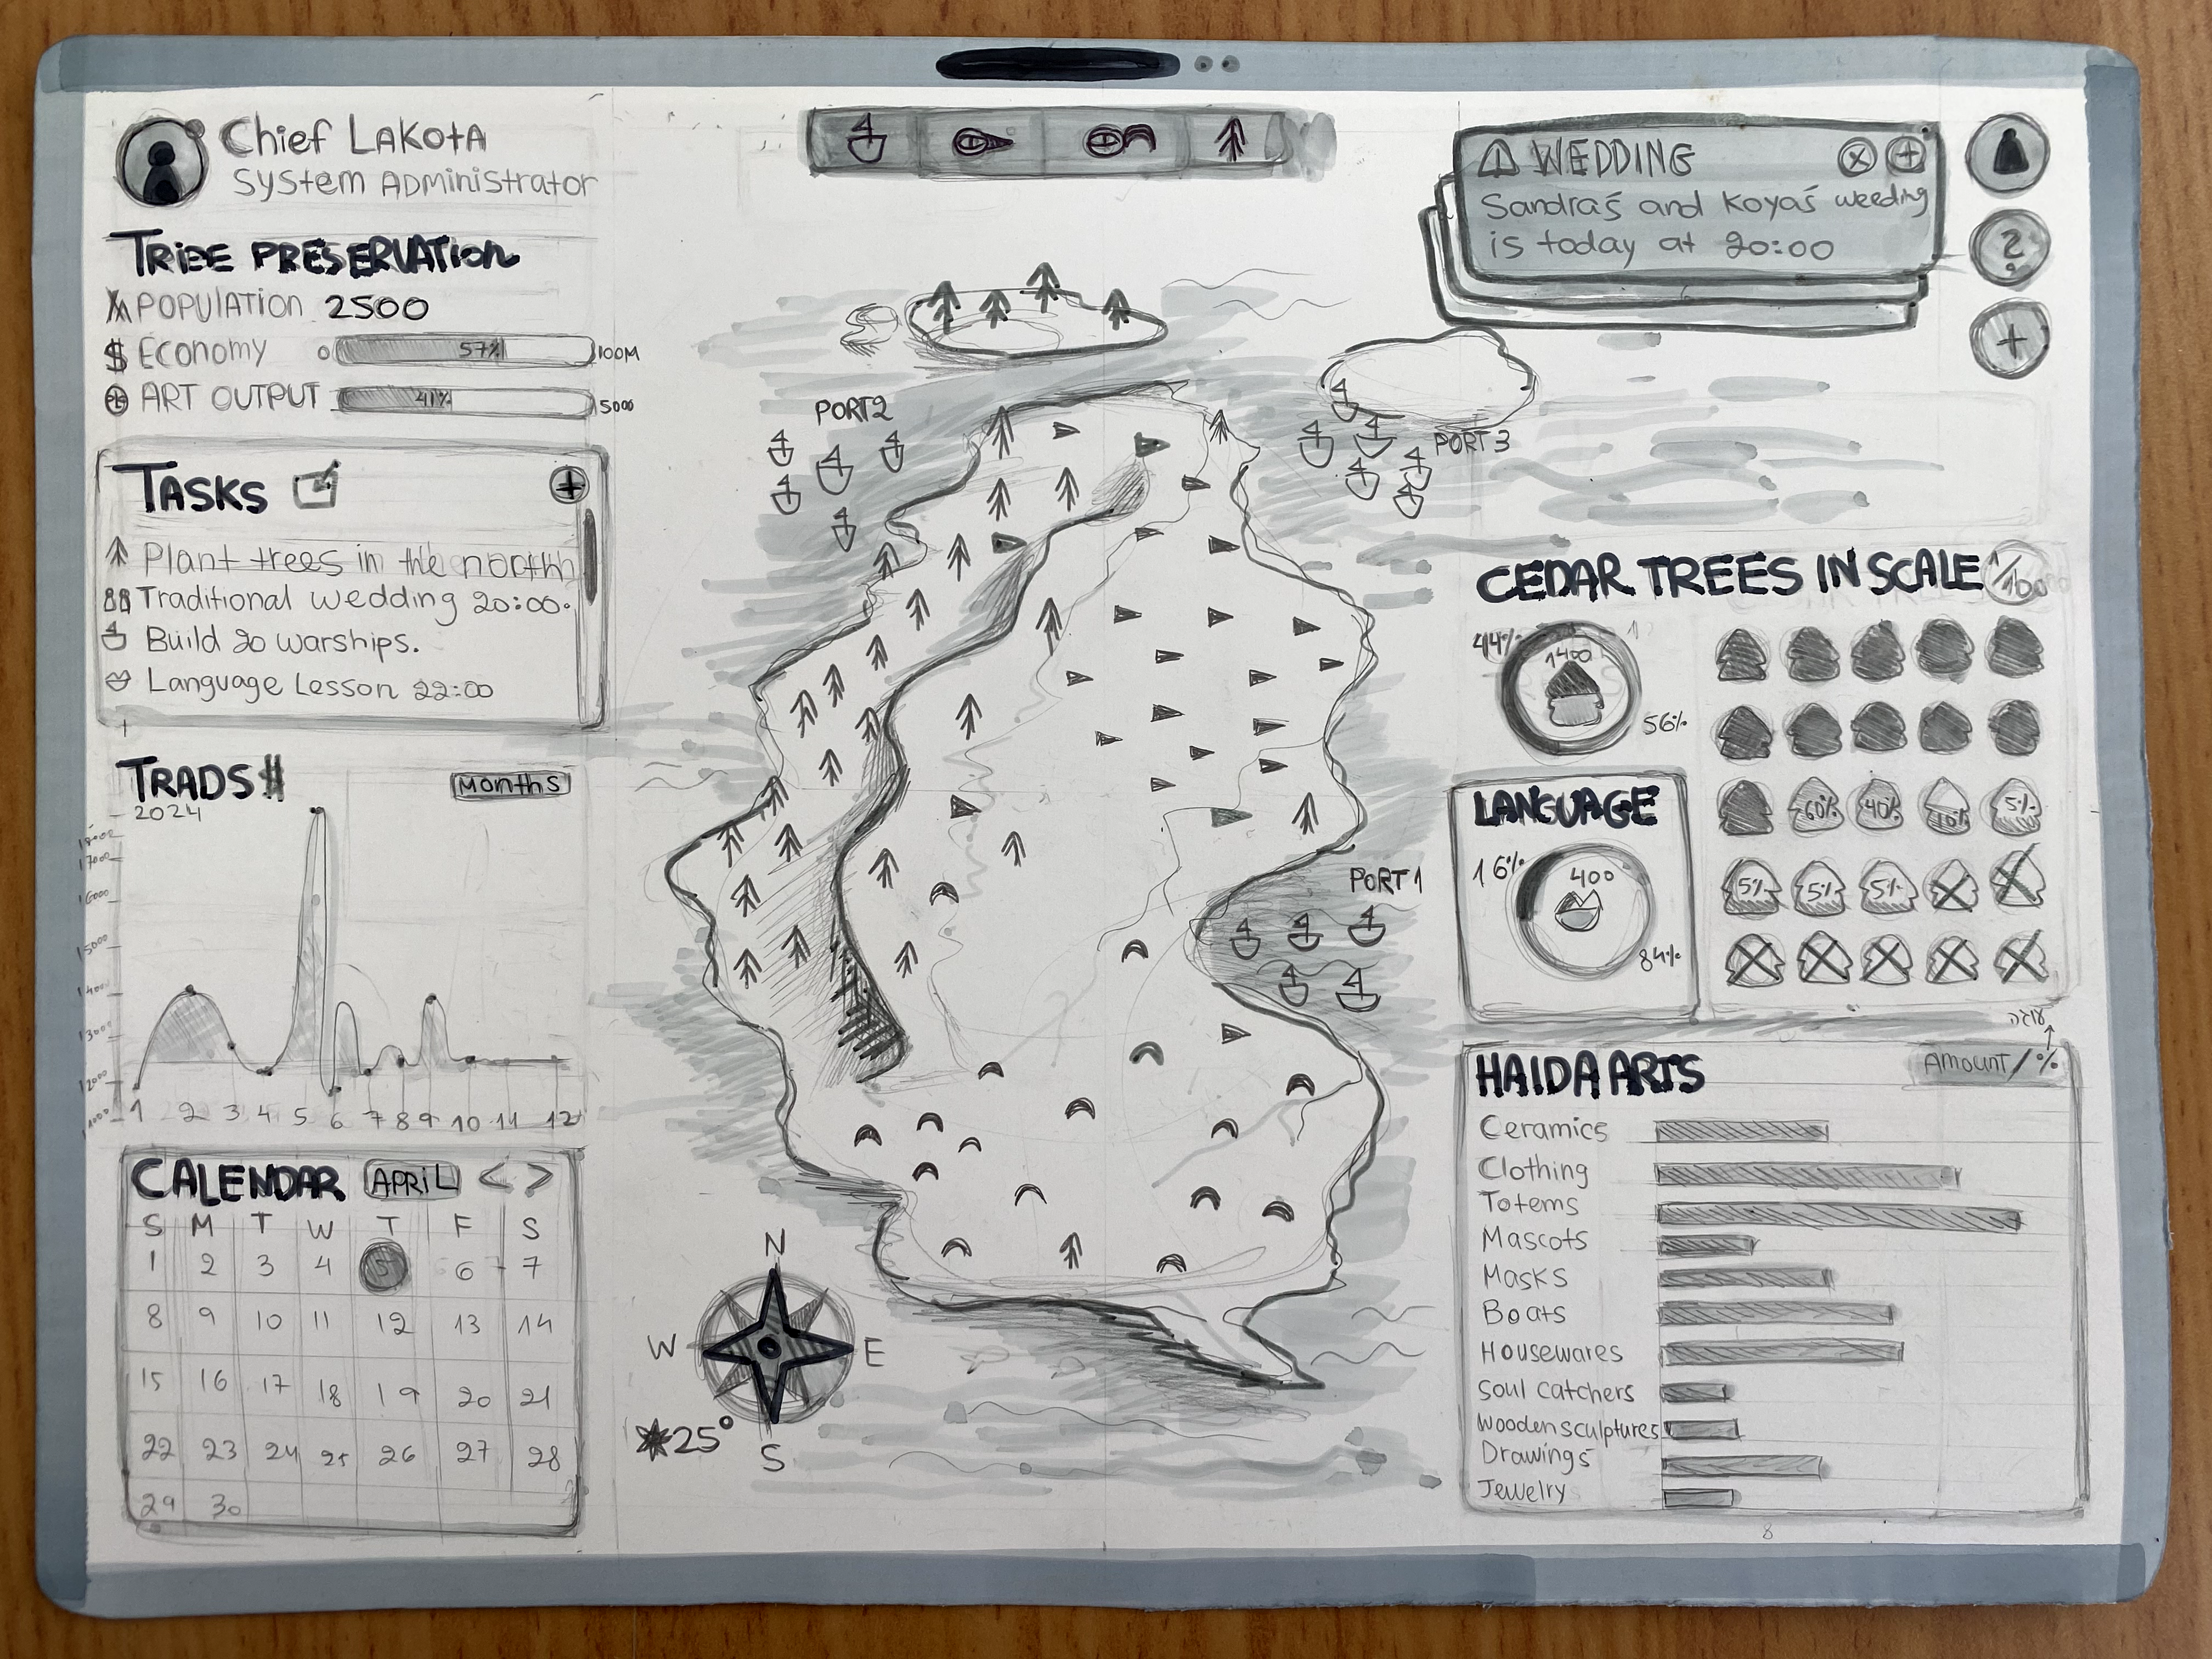 Chief LAKOTA
System ADministrator
TRIBE PRESERVATION
POPULATION 2500
$ Economy 0 57% 100M
ART OUTPUT 41% 5000
TASKS
Plant trees in the north
Traditional wedding 20:00.
Build 20 warships.
Language Lesson 22:00
TRADS
Months
2024
18000
17000
16000
15000
14000
13000
12000
1 2 3 4 5 6 7 8 9 10 11 12
CALENDAR APRIL < >
S M T W T F S
1 2 3 4 5 6 7
8 9 10 11 12 13 14
15 16 17 18 19 20 21
22 23 24 25 26 27 28
29 30
PORT2
PORT 3
PORT 1
N
W E
S
25°
WEDDING
Sandra's and Koya's weeding
is today at 20:00
?
+
CEDAR TREES IN SCALE 1/100
44%
1400
56%
60% 40% 10% 5%
5% 5% 5%
LANGUAGE
16%
400
84%
HAIDA ARTS
Amount/%
Ceramics
Clothing
Totems
Mascots
Masks
Boats
Housewares
Soul catchers
Wooden sculptures
Drawings
Jewelry
8